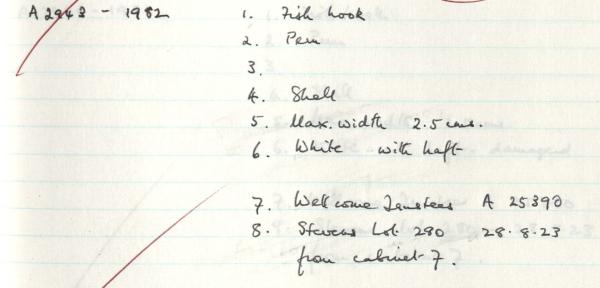 A2943 - 1982 1. Fish hook
2. Peru
3.
4. Shell
5. Max. width 2.5 cms.
6. White with haft
7. Wellcome A 25390
8. Stevens Lot 290 28.8.23
from cabinet 7.